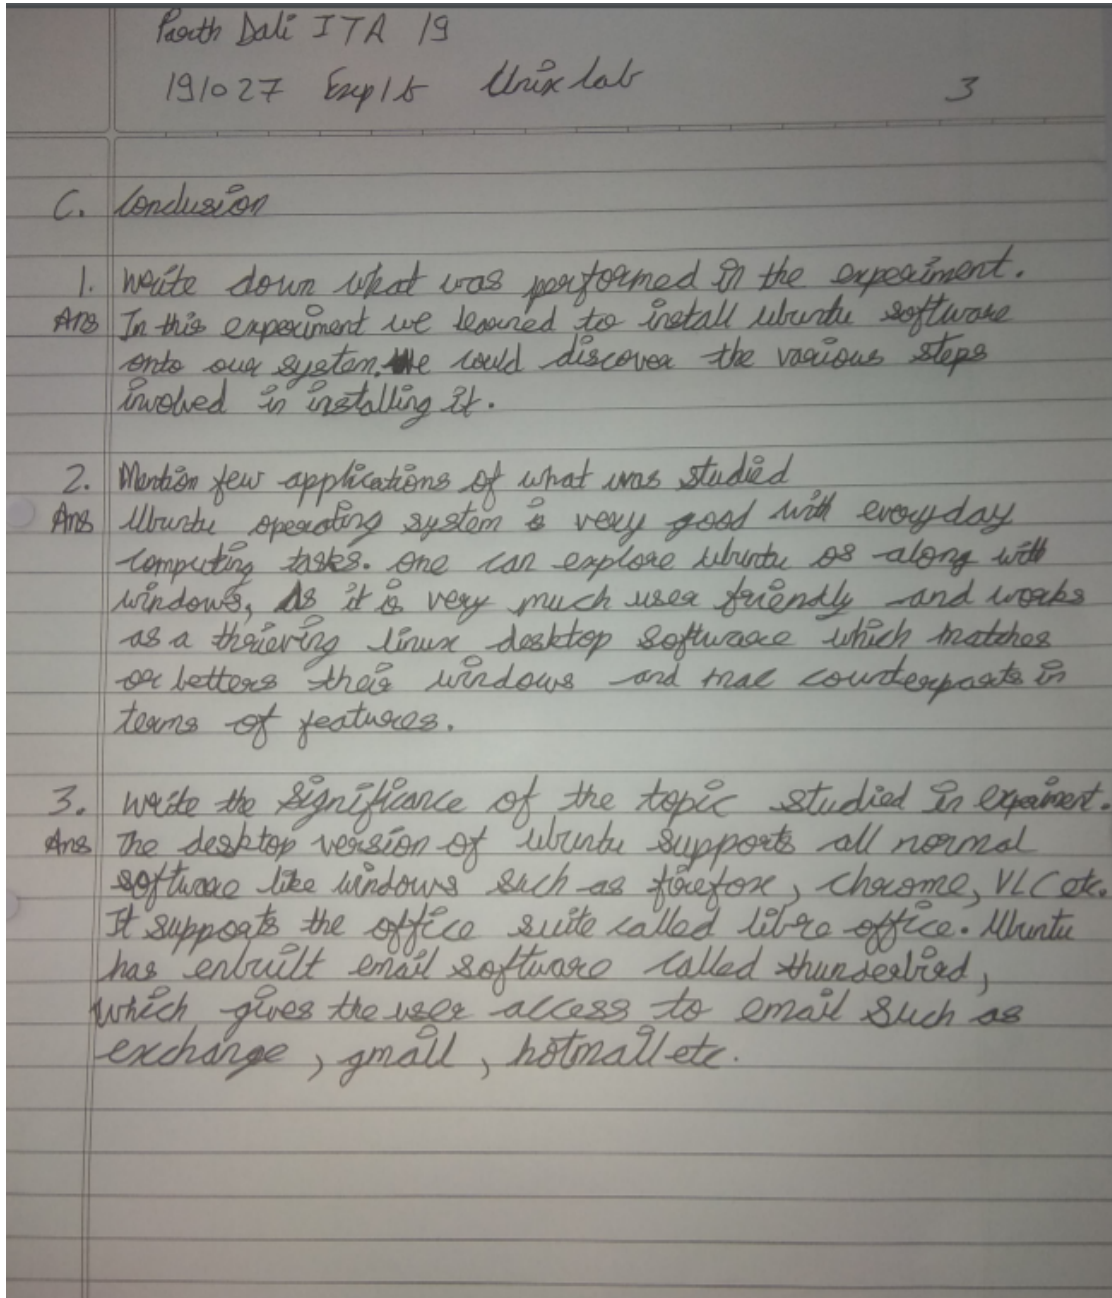 Parth Dali ITA 19
191027 Exp 1b Unix lab 3
C. Conclusion
1. Write down what was performed in the experiment.
Ans In this experiment we learned to install ubuntu software
onto our system. We could discover the various steps
involved in installing it.
2. Mention few applications of what was studied
Ans Ubuntu operating system is very good with everyday
computing tasks. One can explore ubuntu os along with
windows, As it is very much user friendly and works
as a thrieving linux desktop software which matches
or betters their windows and mac counterparts in
terms of features.
3. Write the significance of the topic studied in expeiment.
Ans The desktop version of ubuntu supports all normal
software like windows such as firefox, chrome, VLC etc.
It supports the office suite called libre office. Ubuntu
has enbuilt email software called thunderbird,
which gives the user access to email such as
exchange, gmail, hotmail etc.